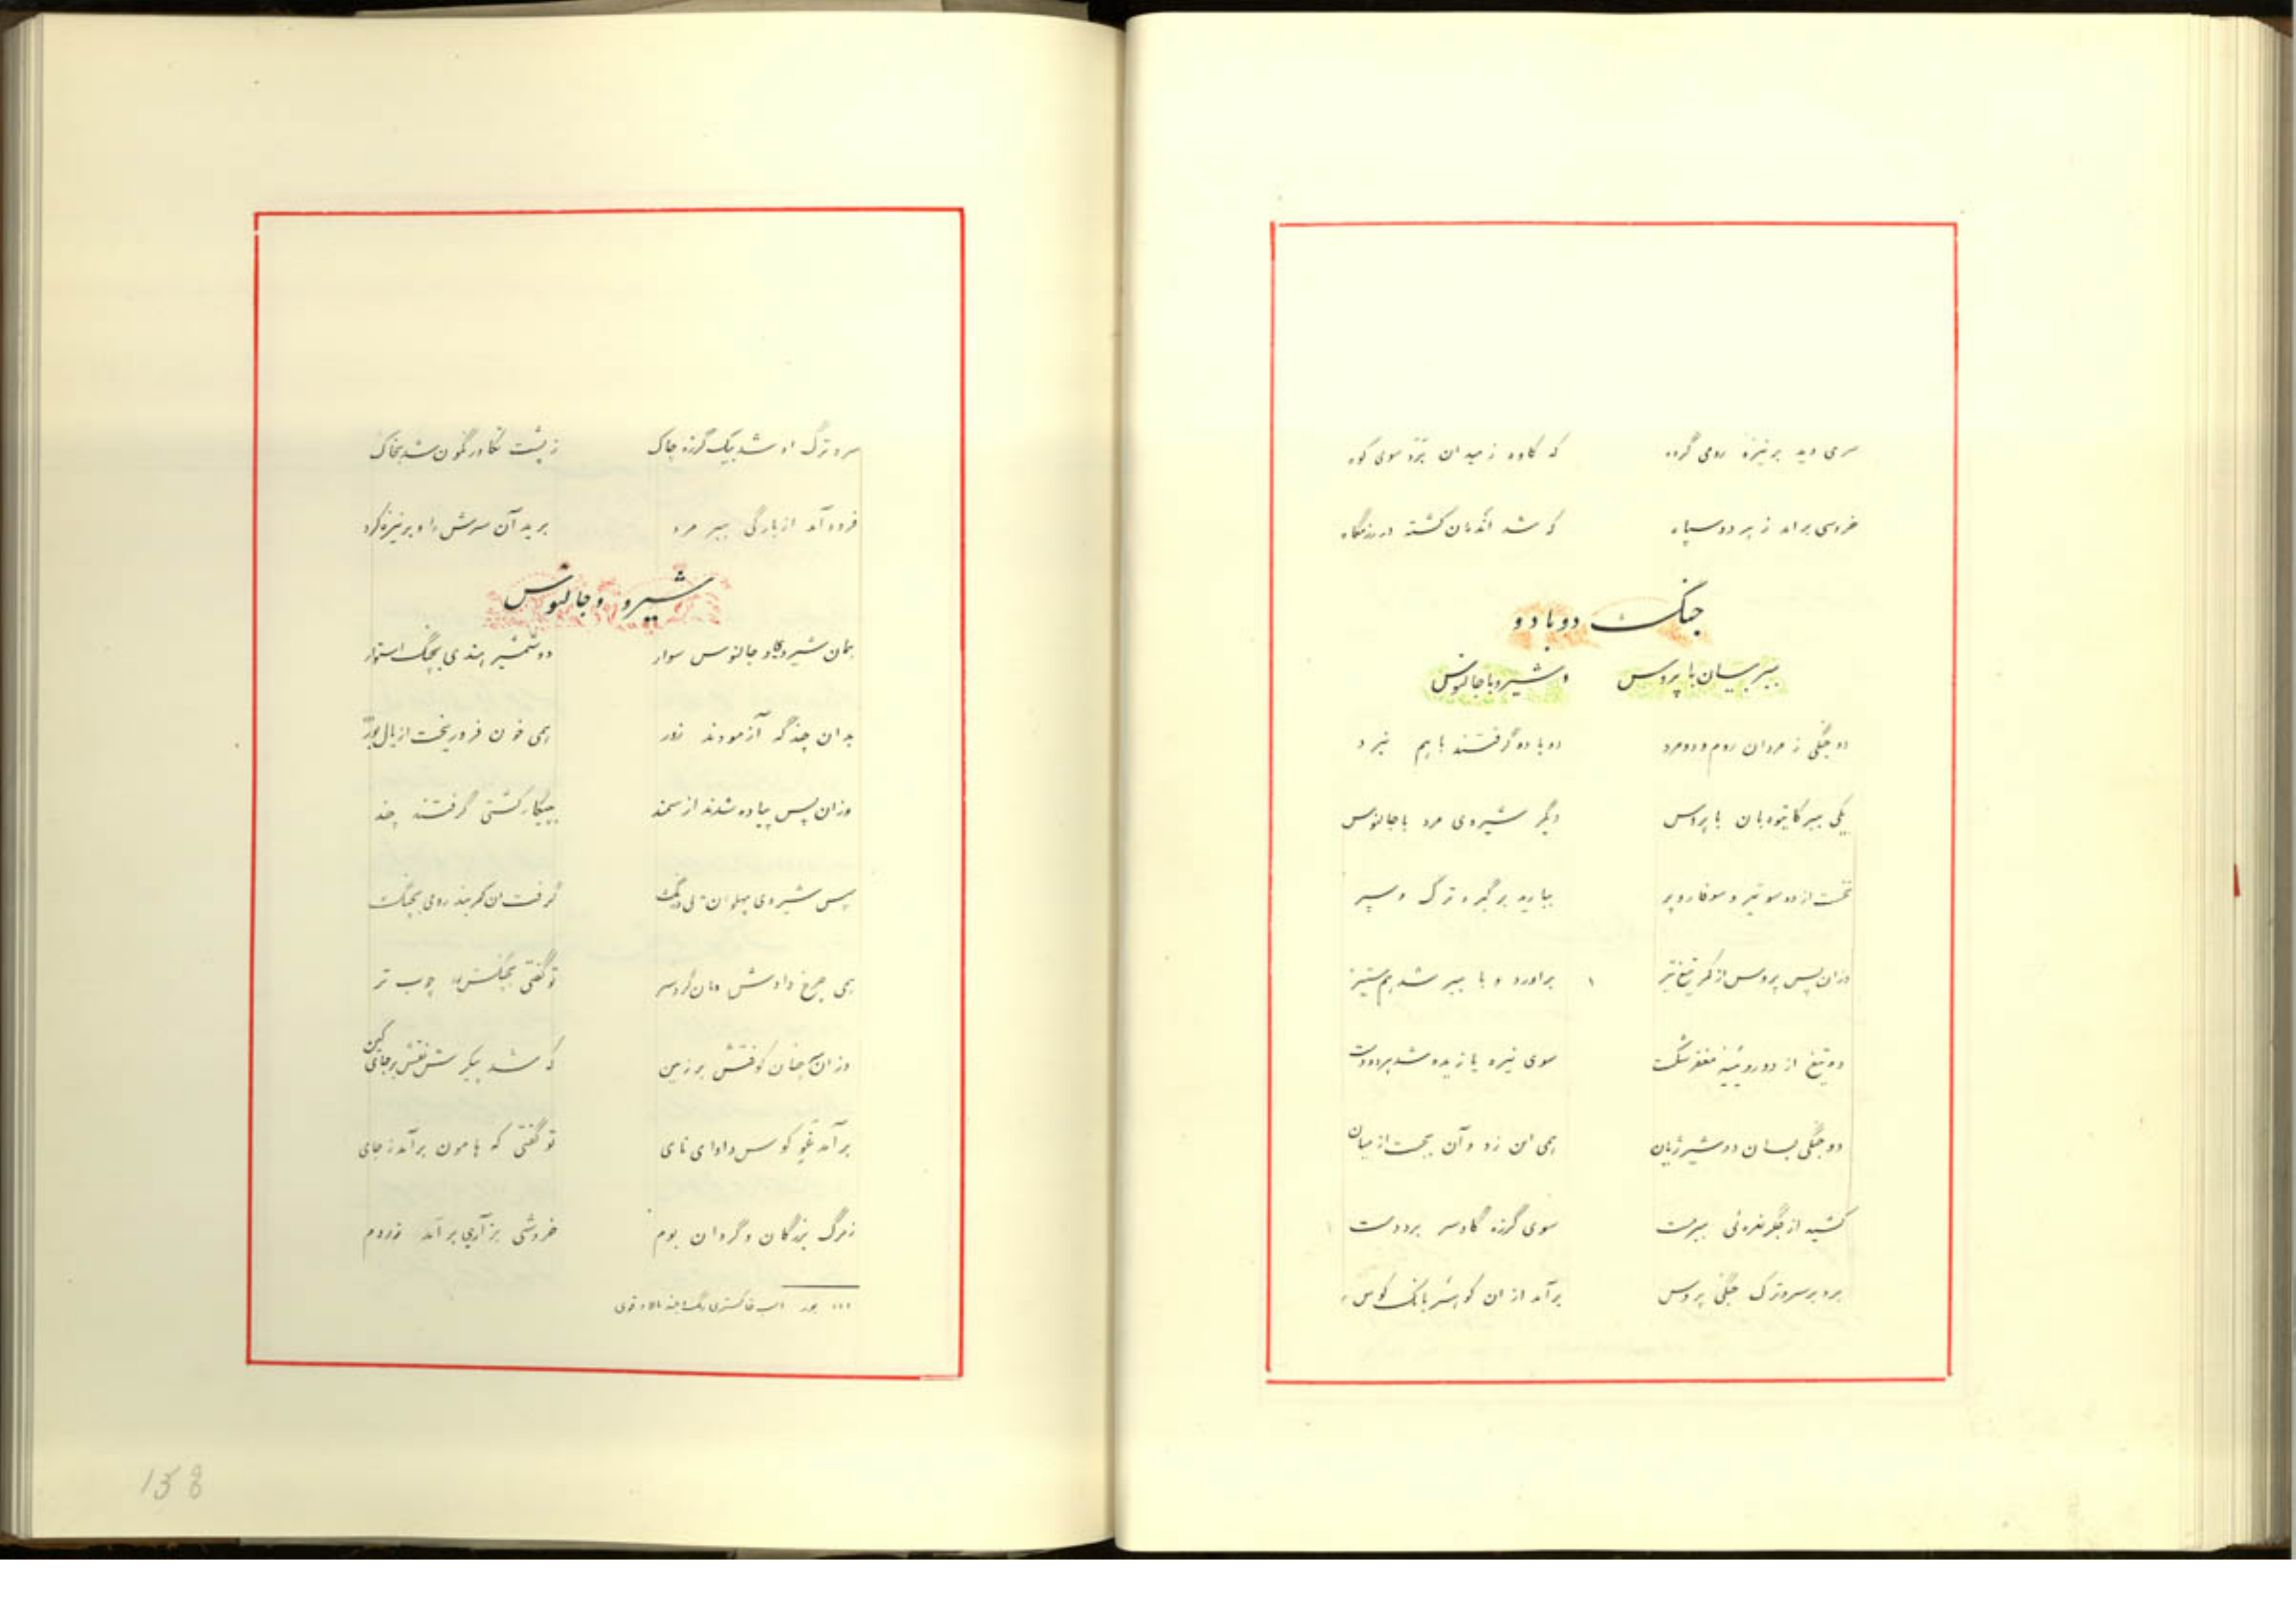 سری دید بر نیزه رومی گروه که کاوه ز میدان بَرَد سوی کوه
خروسی براند ز بر دو سپاه که شد اندمان کشته در رزمگاه
جنگ دو با دو
ببر بیان با پروس و شیرو با جالنوس
دو جنگی ز مردان روم و دو مرد دو با دو گرفتند با هم نبرد
یکی ببر کاتوزیان با پروس دیگر شیروی مرد با جالنوس
نخست از دو سو تیر و سوفار و پر ببارید بر گبر و ترگ و سپر
وزان پس پروس از کمر تیغ تیز براورد و با ببر شد هم ستیز
دو تیغ از دو رویینه مغفر شکست سوی نیزه یازیده شد هر دو دست
دو جنگی بسان دو شیر ژیان همی این زد و آن بجست از میان
کشید از جگر نعره ئی ببر مست سوی گرزه گاوسر برد دست
بزد بر سر و ترک جنگی پروس برآمد از ان کوه بشر بانک کوس
سر و ترگ او شد بیک گرزه چاک ز پشت تکاور نگون شد بخاک
فرود آمد از بارگی ببر مرد برید آن سرش را و بر نیزه کرد
شیرو و جالنوس
همان شیرو گاو جالنوس سوار دو شمشیر هندی بچنگ استوار
بدان چند گه آزمودند زور همی خون فرو ریخت از یال بور
وزان پس پیاده شدند از سمند بپیکار کشتی گرفتند چند
پس شیروی پهلوان بی درنگ گرفت ان کمربند رومی بچنگ
همی چرخ دادش دمان گرد سر تو گفتی بچنگش بد چوب تر
وزان پس چنان کوفتش بر زمین که شد پیکرش نقش بر جای کین
برآمد غو کوس و اوای نای تو گفتی که هامون برآمد ز جای
ز مرگ بزرگان و گردان بوم خروشی بزاری برآمد ز روم
۰۰۰ بور اسب خاکستری رنگ بلند بالا و قوی
158